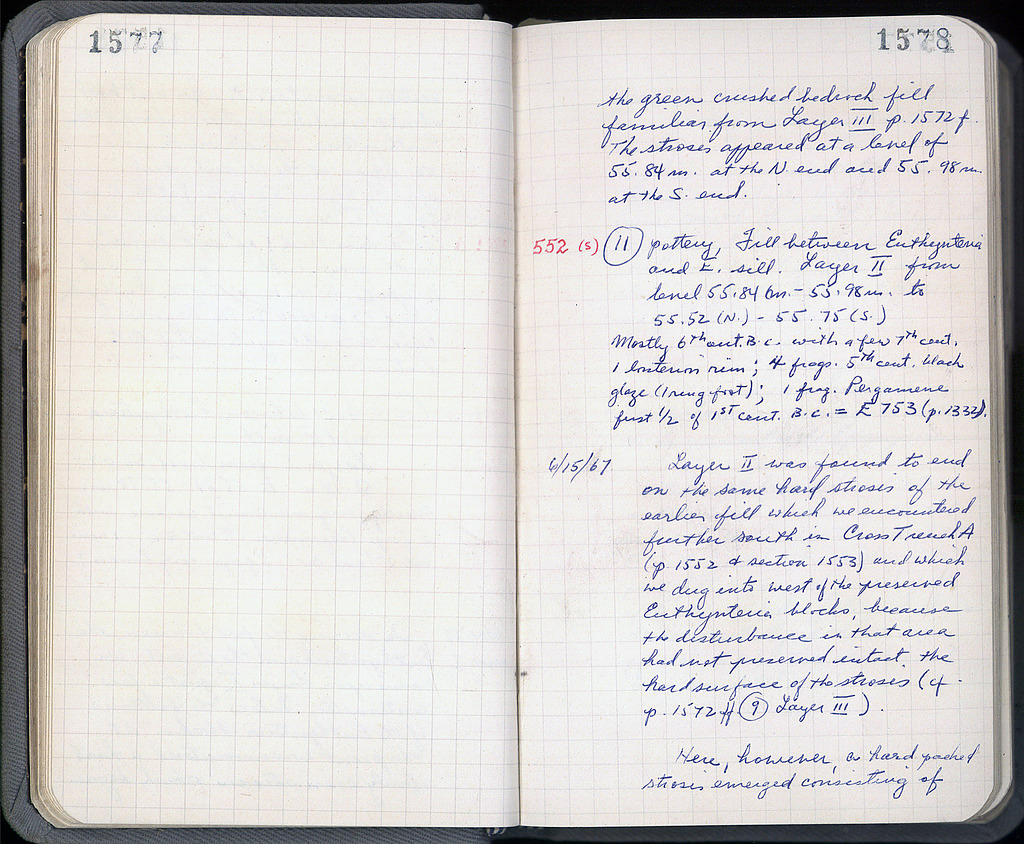 1577
1578
the green crushed bedrock fill
familiar from Layer III p. 1572 f.
The stroses appeared at a level of
55.84 m. at the N. end and 55.98 m.
at the S. end.
552 (s) 11 pottery, Fill between Euthynteria
and E. sill. Layer II from
level 55.84 m. - 55.98 m. to
55.52 (N.) - 55.75 (S.)
Mostly 6th cent. B.C. with a few 7th cent.
1 rim; 4 frags. 5th cent. black
glaze (1 ring foot); 1 frag. Pergamene
first 1/2 of 1st cent. B.C. = E 753 (p. 1332).
6/15/67 Layer II was found to end
on the same hard stroses of the
earlier fill which we encountered
further south in Cross Trench A
(p. 1552 & section 1553) and which
we dug into west of the preserved
Euthynteria blocks, because
the disturbance in that area
had not preserved intact the
hard surface of the stroses (cf.
p. 1572 ff 9 Layer III).
Here, however, a hard packed
strosis emerged consisting of